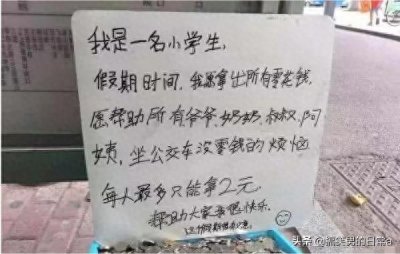 我是一名小学生,
假期时间,我愿拿出所有零花钱,
愿帮助所有爷爷,奶奶,叔叔,阿
姨,坐公交车没零钱的烦恼
每人最多只能拿2元
帮助大家我很快乐.
头条 @搞笑男的日常a